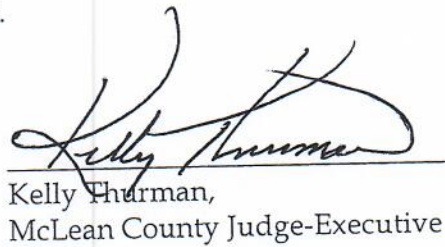 Kelly Thurman
Kelly Thurman,
McLean County Judge-Executive